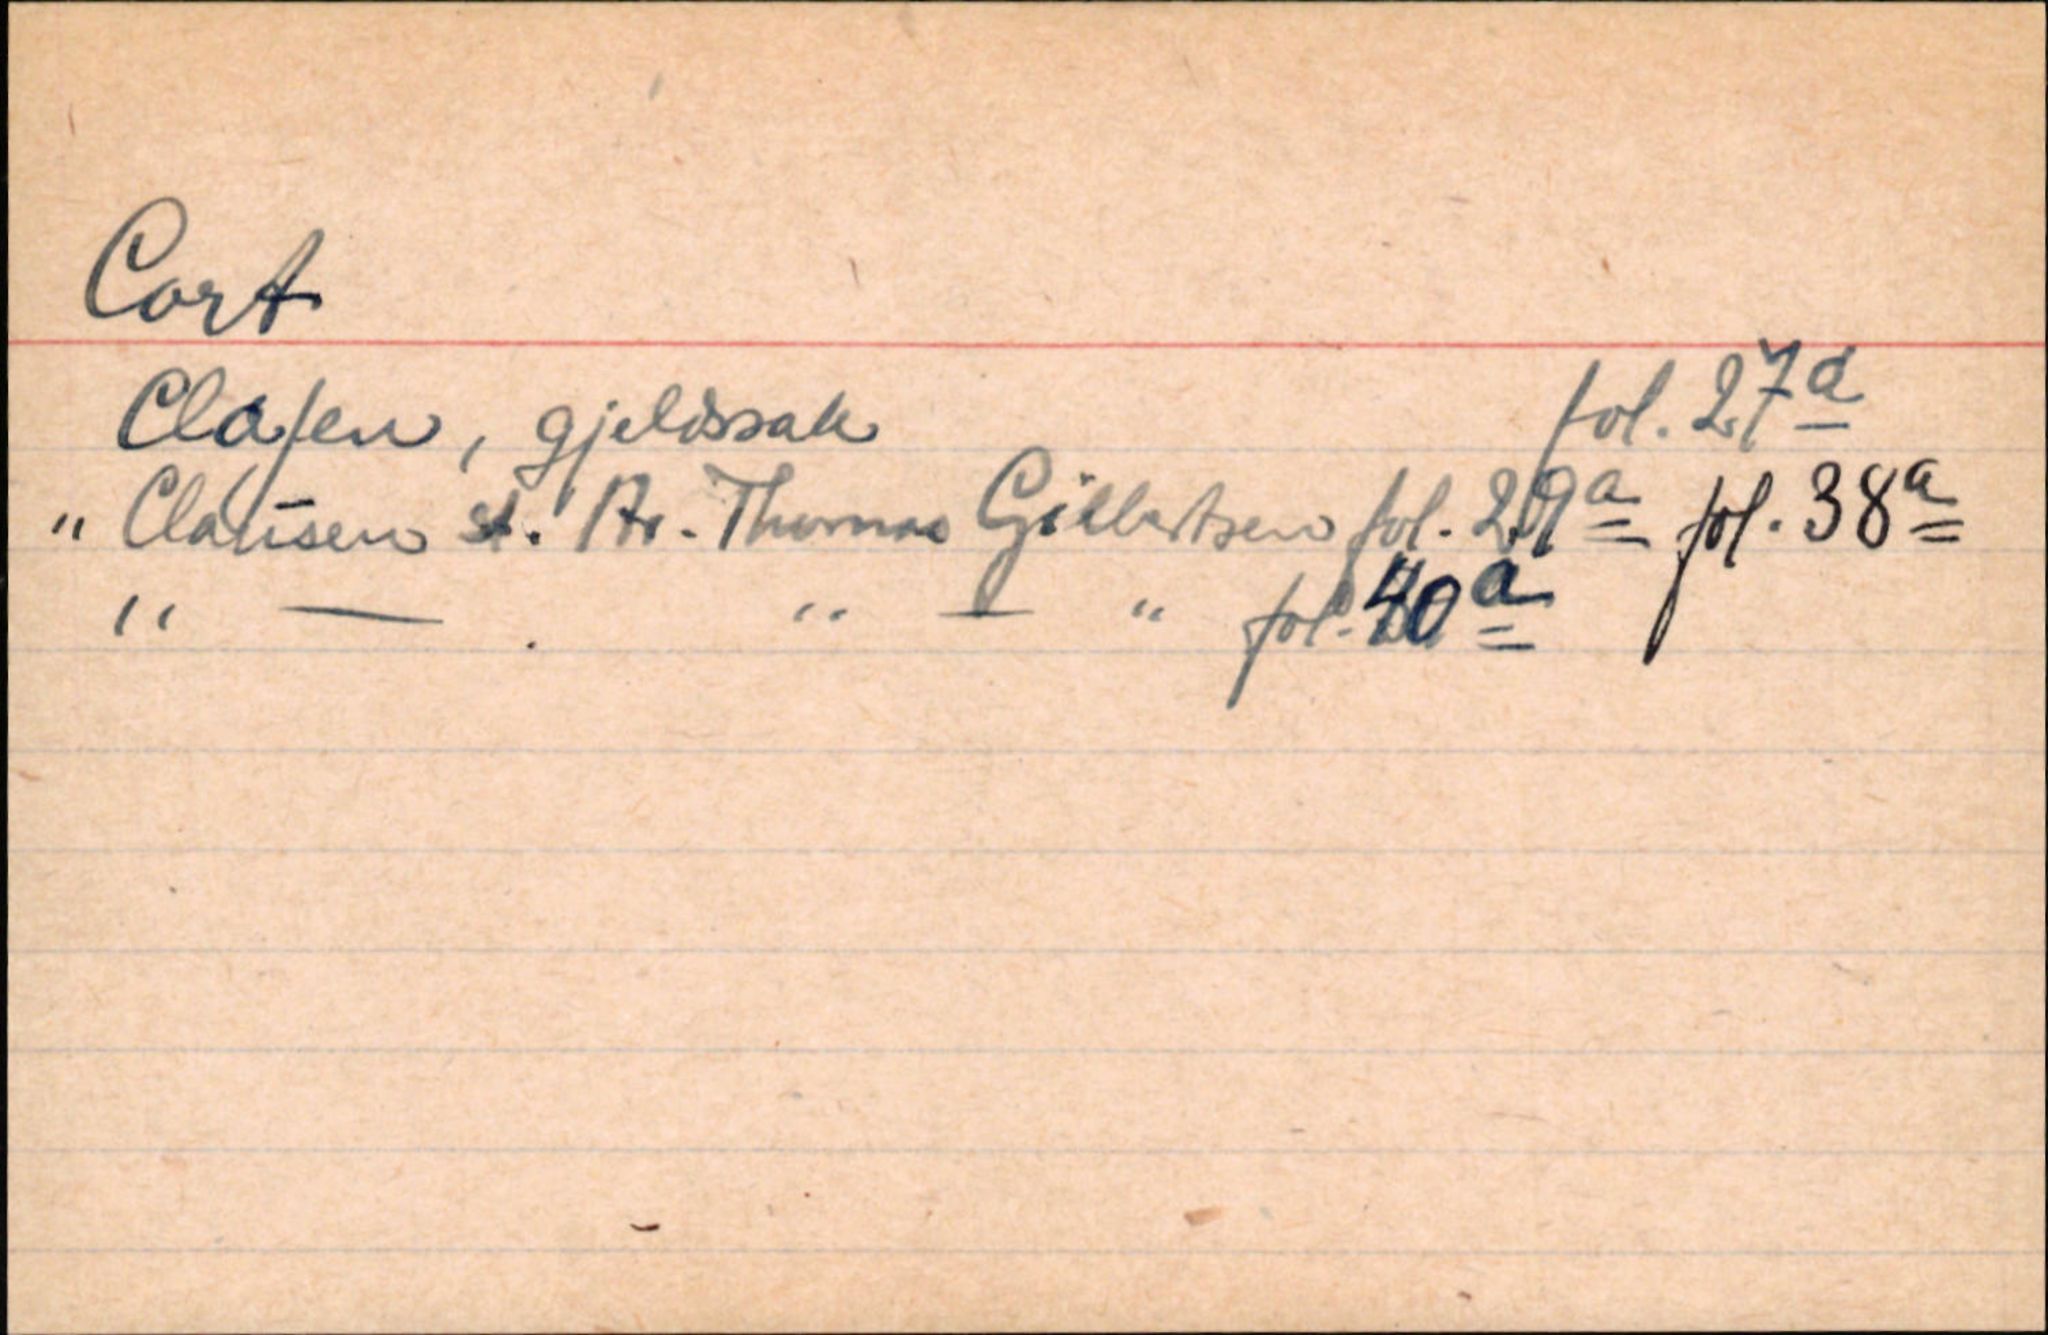 Cort
Clasen, gjeldssak fol. 27a
" Clausen st. Br. Thomas Gilbertsen fol. 29a fol. 38a
" — " — " fol. 40a